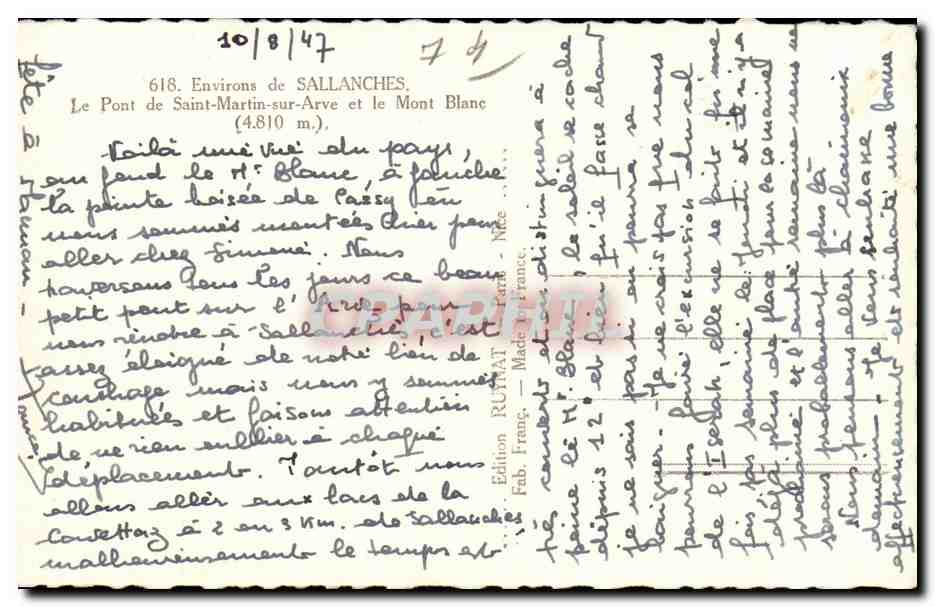 10/8/47
74
618. Environs de SALLANCHES.
Le Pont de Saint-Martin-sur-Arve et le Mont Blanc
(4.810 m.).
Voilà une vue du pays,
au fond le Mt Blanc, à gauche
la pointe boisée de Passy où
nous sommes montées hier pour
aller chez Simone. Nous
traversons tous les jours ce beau
petit pont sur l'Arve pour
nous rendre à Sallanches, c'est
assez éloigné de notre lieu de
couchage mais nous y sommes
habituées et faisons attention
de ne rien oublier à chaque
déplacement. Tantôt nous
allons aller aux lacs de la
Cavettaz à 2 ou 3 Km. de Sallanches
malheureusement le temps est
très couvert et on distinguera à
peine le Mt Blanc, le soleil se cache
depuis 12 et bien qu'il fasse chaud
je ne sais pas si on pourra se
baigner. Je ne crois pas que nous
pourrons faire l'excursion du col
de l'Iseran, elle ne se fait qu'une
fois par semaine le jeudi et il n'y a
déjà plus de place pour la semaine
prochaine et l'autre semaine nous ne
serons probablement plus là
Nous pensons aller à Chamonix
demain. Je vous embrasse
affectueusement et souhaite une bonne
fête à Maman.
Edition RUYNAT Paris - Nice
Fab. Franç. — Made in France.
CPARAMA